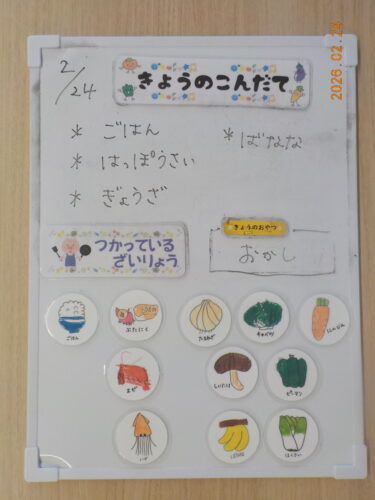 2026.02.24
2/24
きょうのこんだて
* ごはん
* ばなな
* はっぽうさい
* ぎょうざ
きょうのおやつ
つかっている
ざいりょう
おかし
ごはん
ぶたにく
たまねぎ
キャベツ
にんじん
えび
しいたけ
ピーマン
いか
ばなな
はくさい